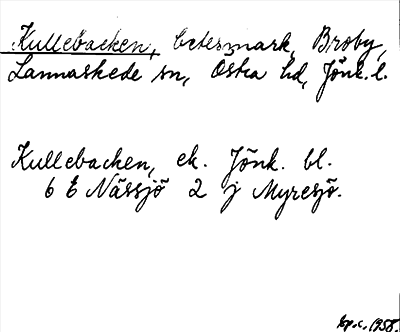 Kullebacken, betesmark, Broby,
Lannaskede sn, Östra hd, Jönk. l.
Kullebacken, ek. Jönk. bl.
6 E Nässjö 2 j Myresjö.
sp.c. 1958.